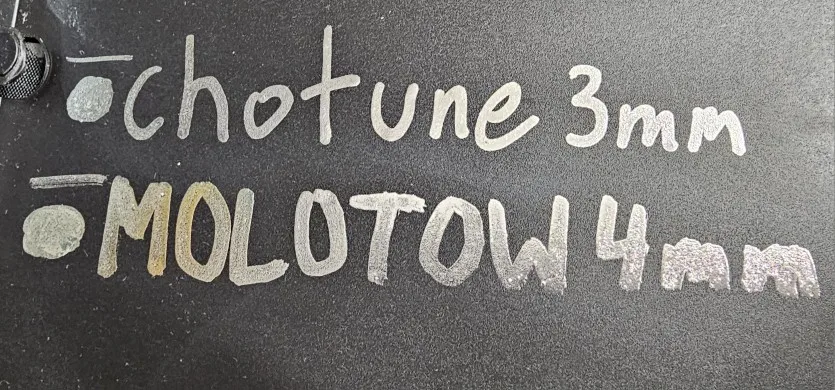 chotune 3mm
MOLOTOW 4mm